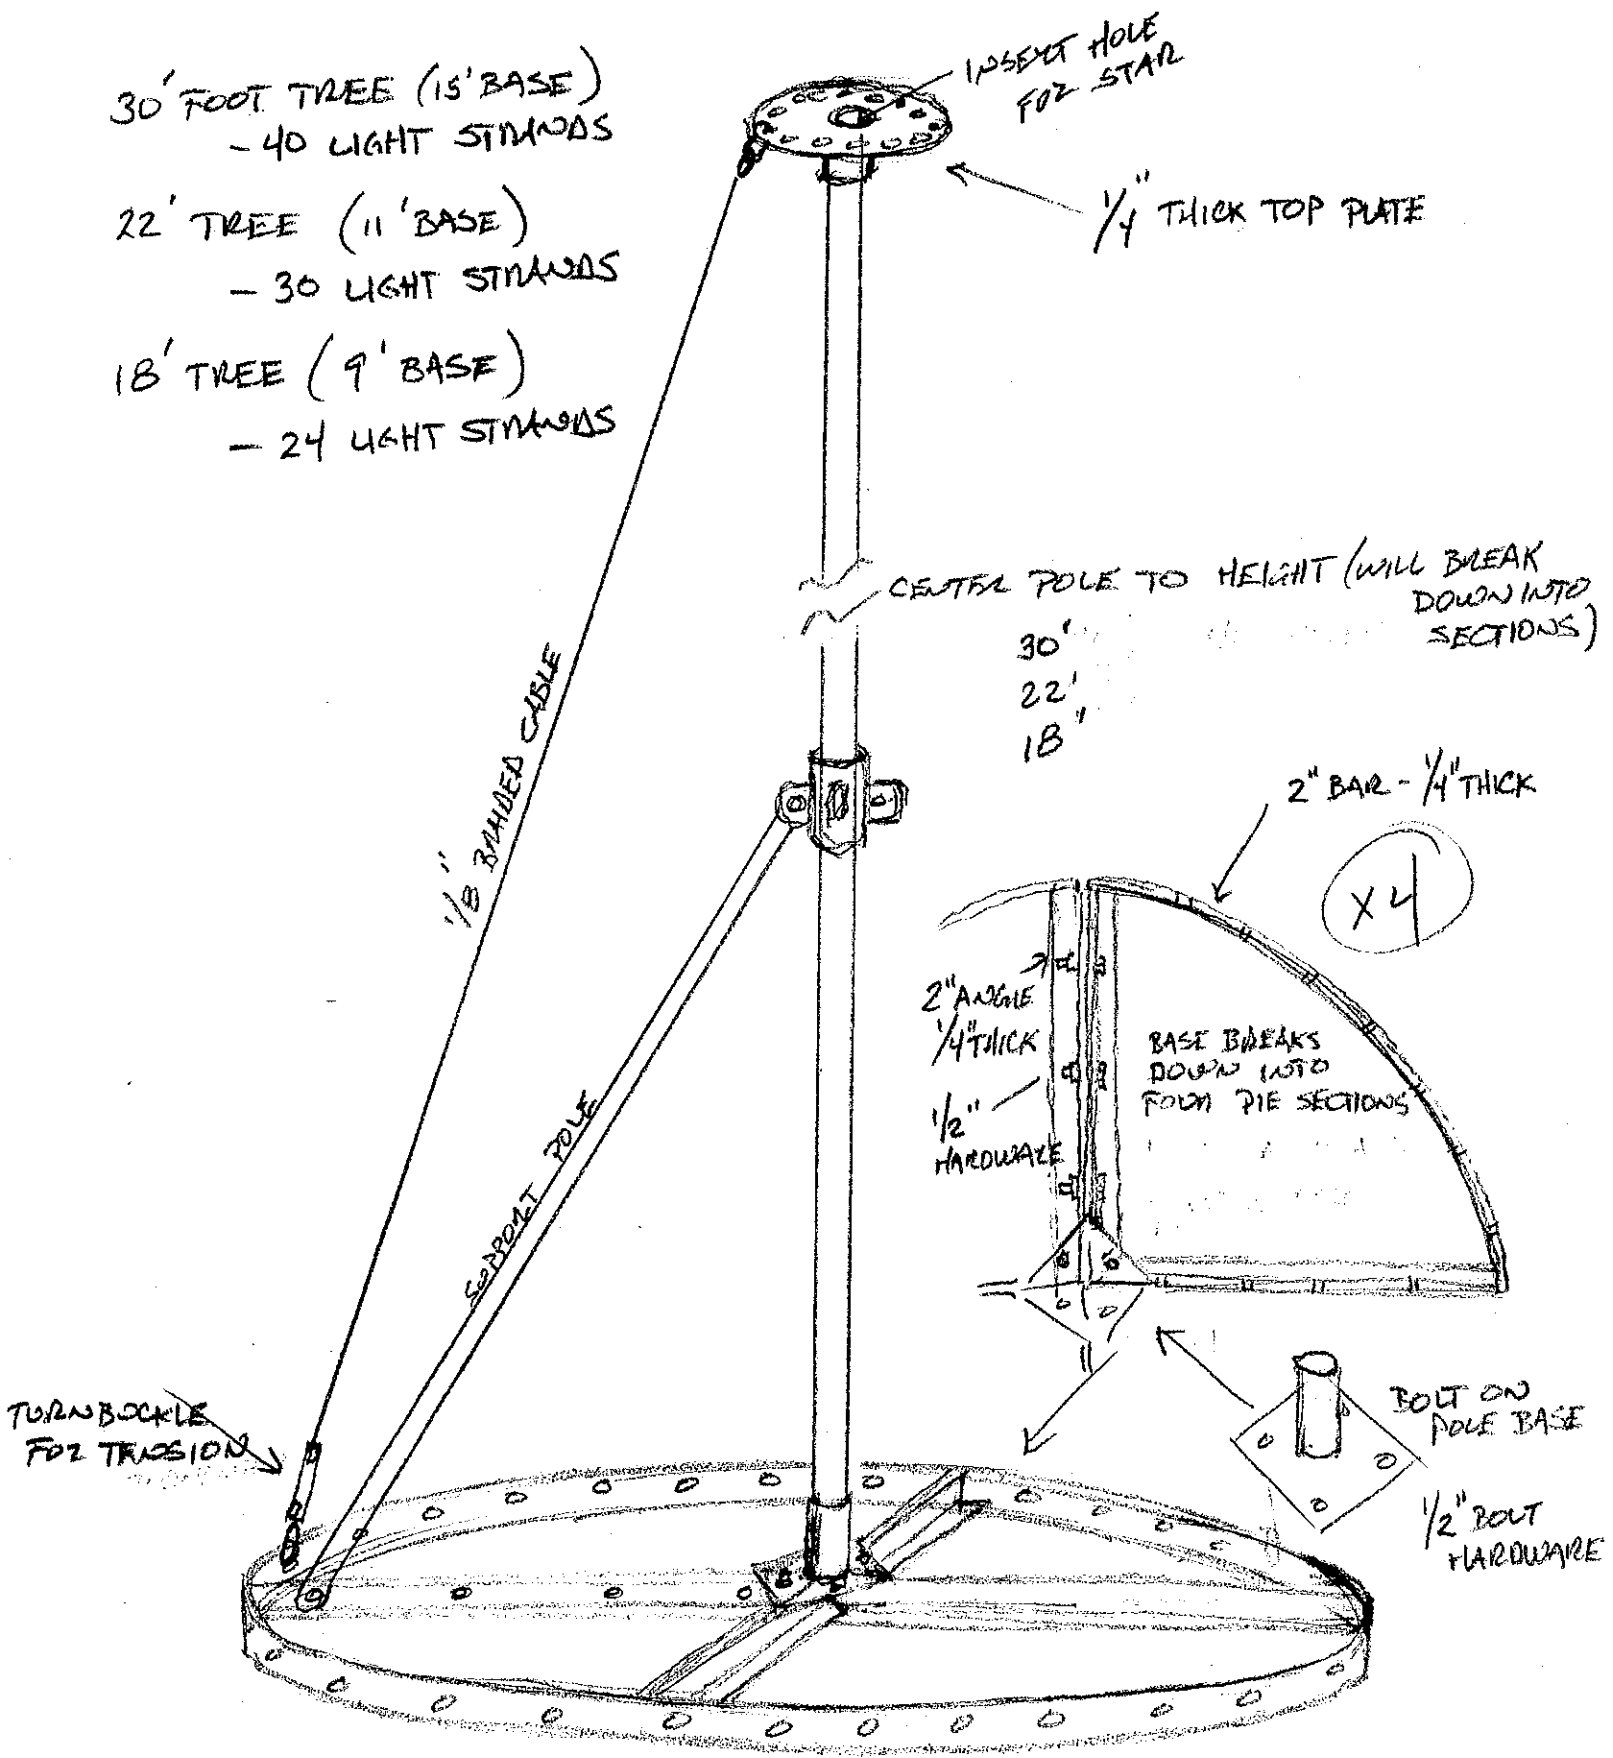 30' FOOT TREE (15' BASE)
- 40 LIGHT STRANDS
22' TREE (11' BASE)
- 30 LIGHT STRANDS
18' TREE (9' BASE)
- 24 LIGHT STRANDS
INSERT HOLE
FOR STAR
1/4" THICK TOP PLATE
CENTER POLE TO HEIGHT (WILL BREAK
DOWN INTO
SECTIONS)
30'
22'
18'
1/8" BRAIDED CABLE
2" BAR - 1/4" THICK
X4
2" ANGLE
1/4" THICK
1/2"
HARDWARE
BASE BREAKS
DOWN INTO
FOUR PIE SECTIONS
SUPPORT POLE
TURNBUCKLE
FOR TENSION
BOLT ON
POLE BASE
1/2" BOLT
HARDWARE